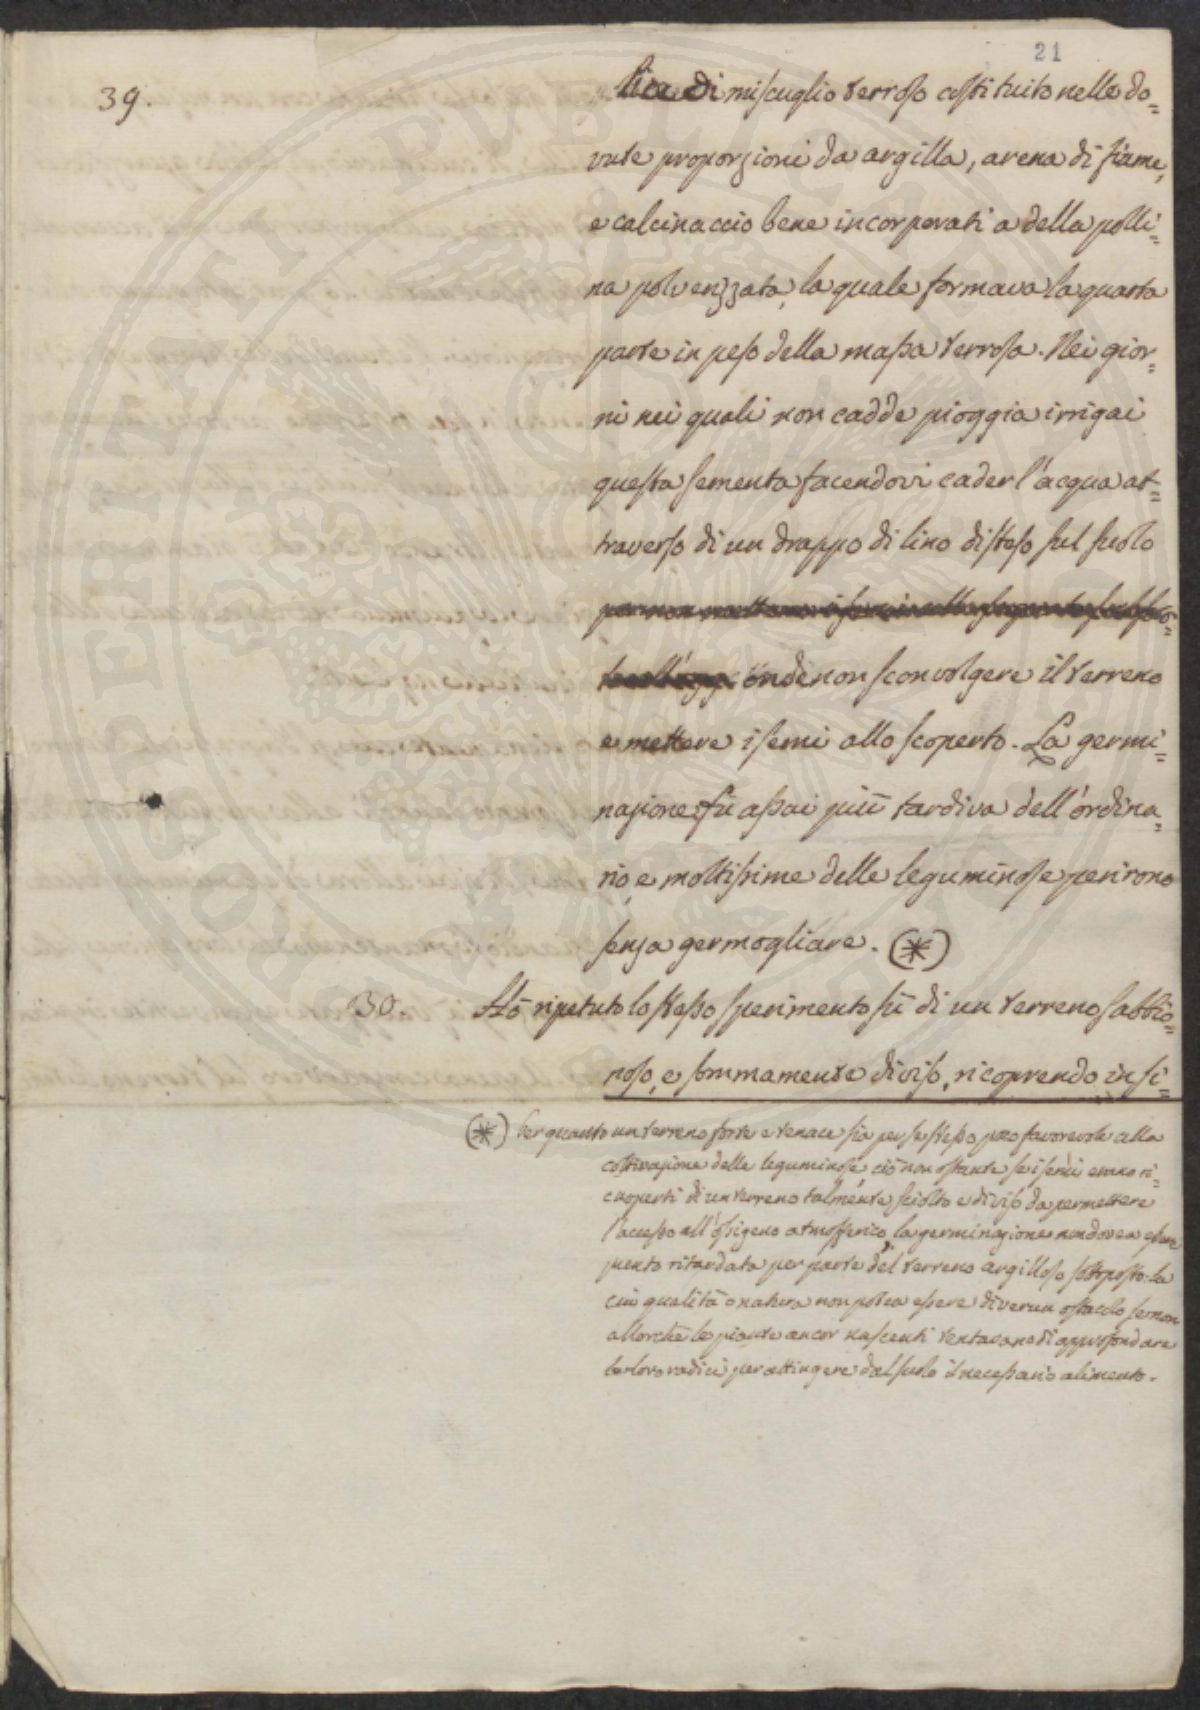 21
39.
lica di miscuglio terroso costituito nelle do=
vute proporzioni da argilla, arena di fiume,
e calcinaccio bene incorporati a della polli=
na polverizzata, la quale formava la quarta
parte in peso della massa terrosa. Nei gior=
ni nei quali non cadde pioggia irrigai
questa sementa facendovi cader l'acqua at=
traverso di un drappo di lino disteso sul suolo
onde non sconvolgere il terreno
e mettere i semi allo scoperto. La germi=
nazione fù assai più tardiva dell'ordina=
rio, e moltissime delle leguminose perirono
senza germogliare. (*)
30. Hò ripetuto lo stesso sperimento sù di un terreno sabbio=
noso, e sommamente diviso, ricoprendo in si=
(*) Per quanto un terreno forte e tenace sia per se stesso poco favorevole alla
coltivazione delle leguminose, ciò non ostante se i semi erano ri=
cuoperti di un terreno talmente sciolto e diviso da permettere
l'accesso all'ossigeno atmosferico, la germinazione non dovea essere
punto ritardata per parte del terreno argilloso sottoposto: la
cui qualità o natura non potea essere di verun ostacolo se non
allorchè le piante ancor nascenti tentavano di approfondare
le loro radici per attingere dal suolo il necessario alimento.
POSTERITATI PUBLICAE